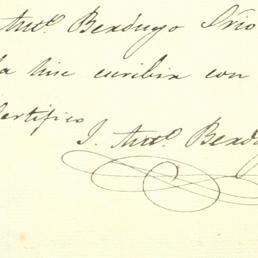 Anto. Berdugo Srio
la hise escribir con
Certifico
J. Anto. Berdu